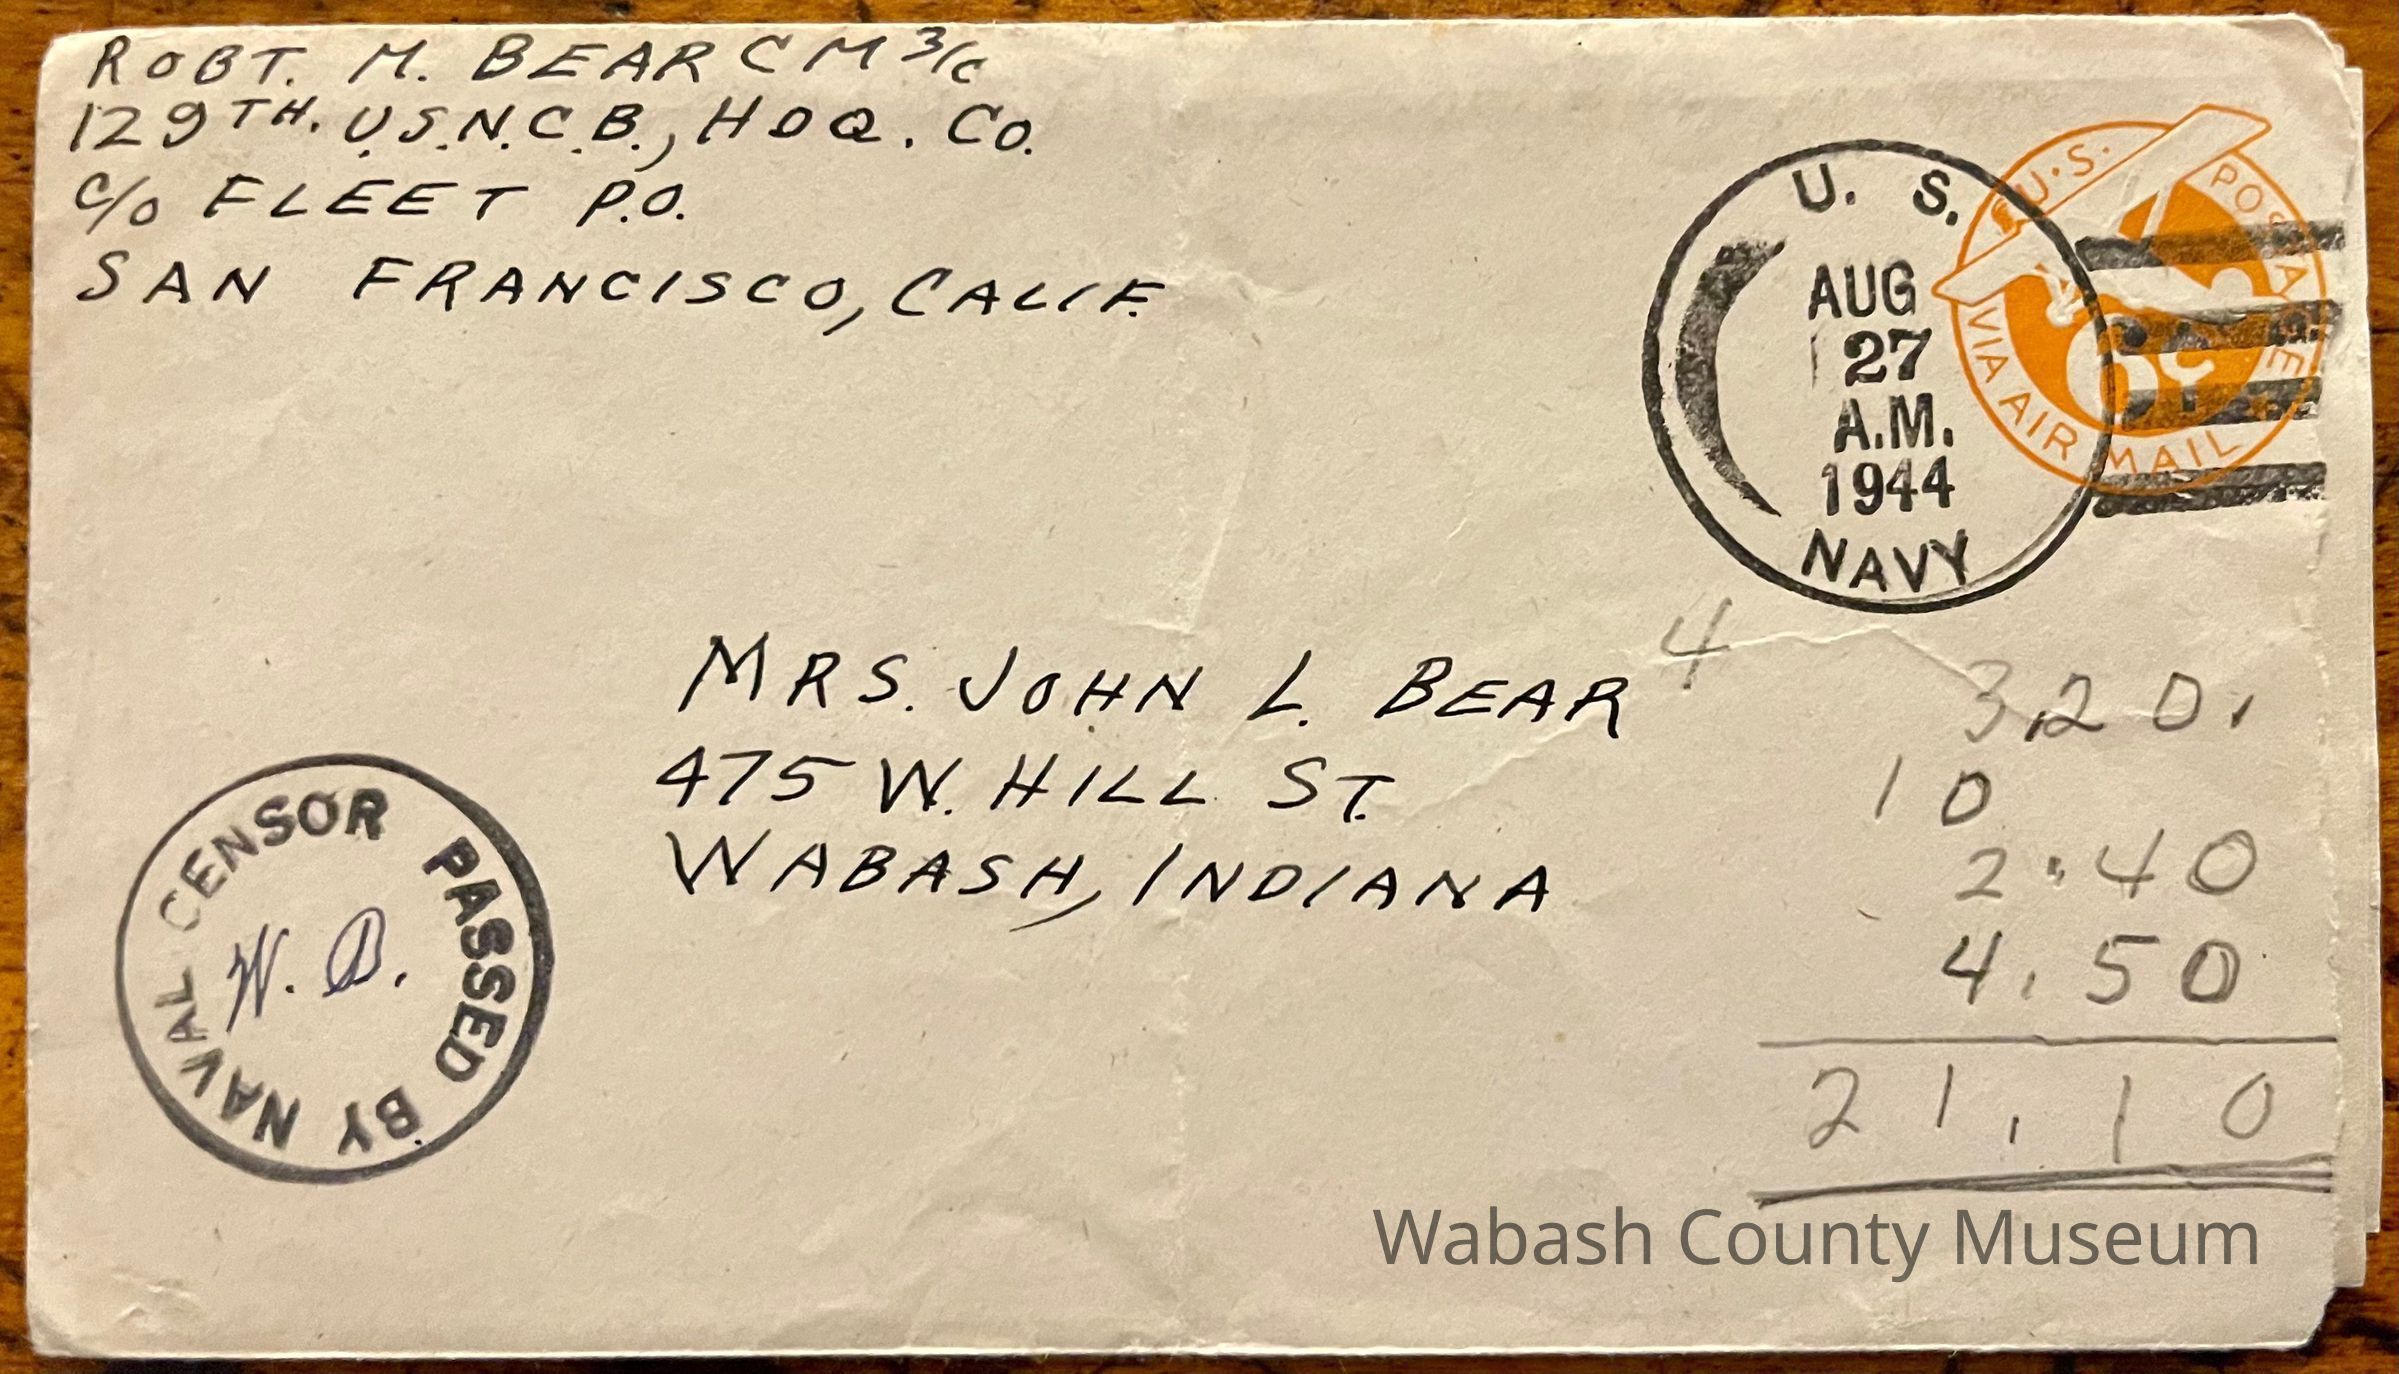 ROBT. M. BEAR CM 3/c
129TH. U.S.N.C.B., HDQ. Co.
c/o FLEET P.O.
SAN FRANCISCO, CALIF.
U. S.
AUG
27
A.M.
1944
NAVY
U.S. POSTAGE
6¢
VIA AIR MAIL
MRS. JOHN L. BEAR
475 W. HILL ST.
WABASH, INDIANA
4
3.20.
10
2.40
4.50
21.10
PASSED BY NAVAL CENSOR
W. B.
Wabash County Museum